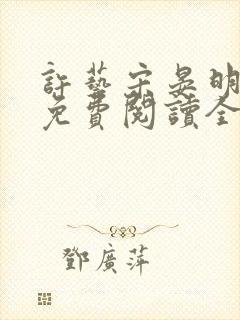 許藝宋晏明
免費閱讀全
鄧廣萍